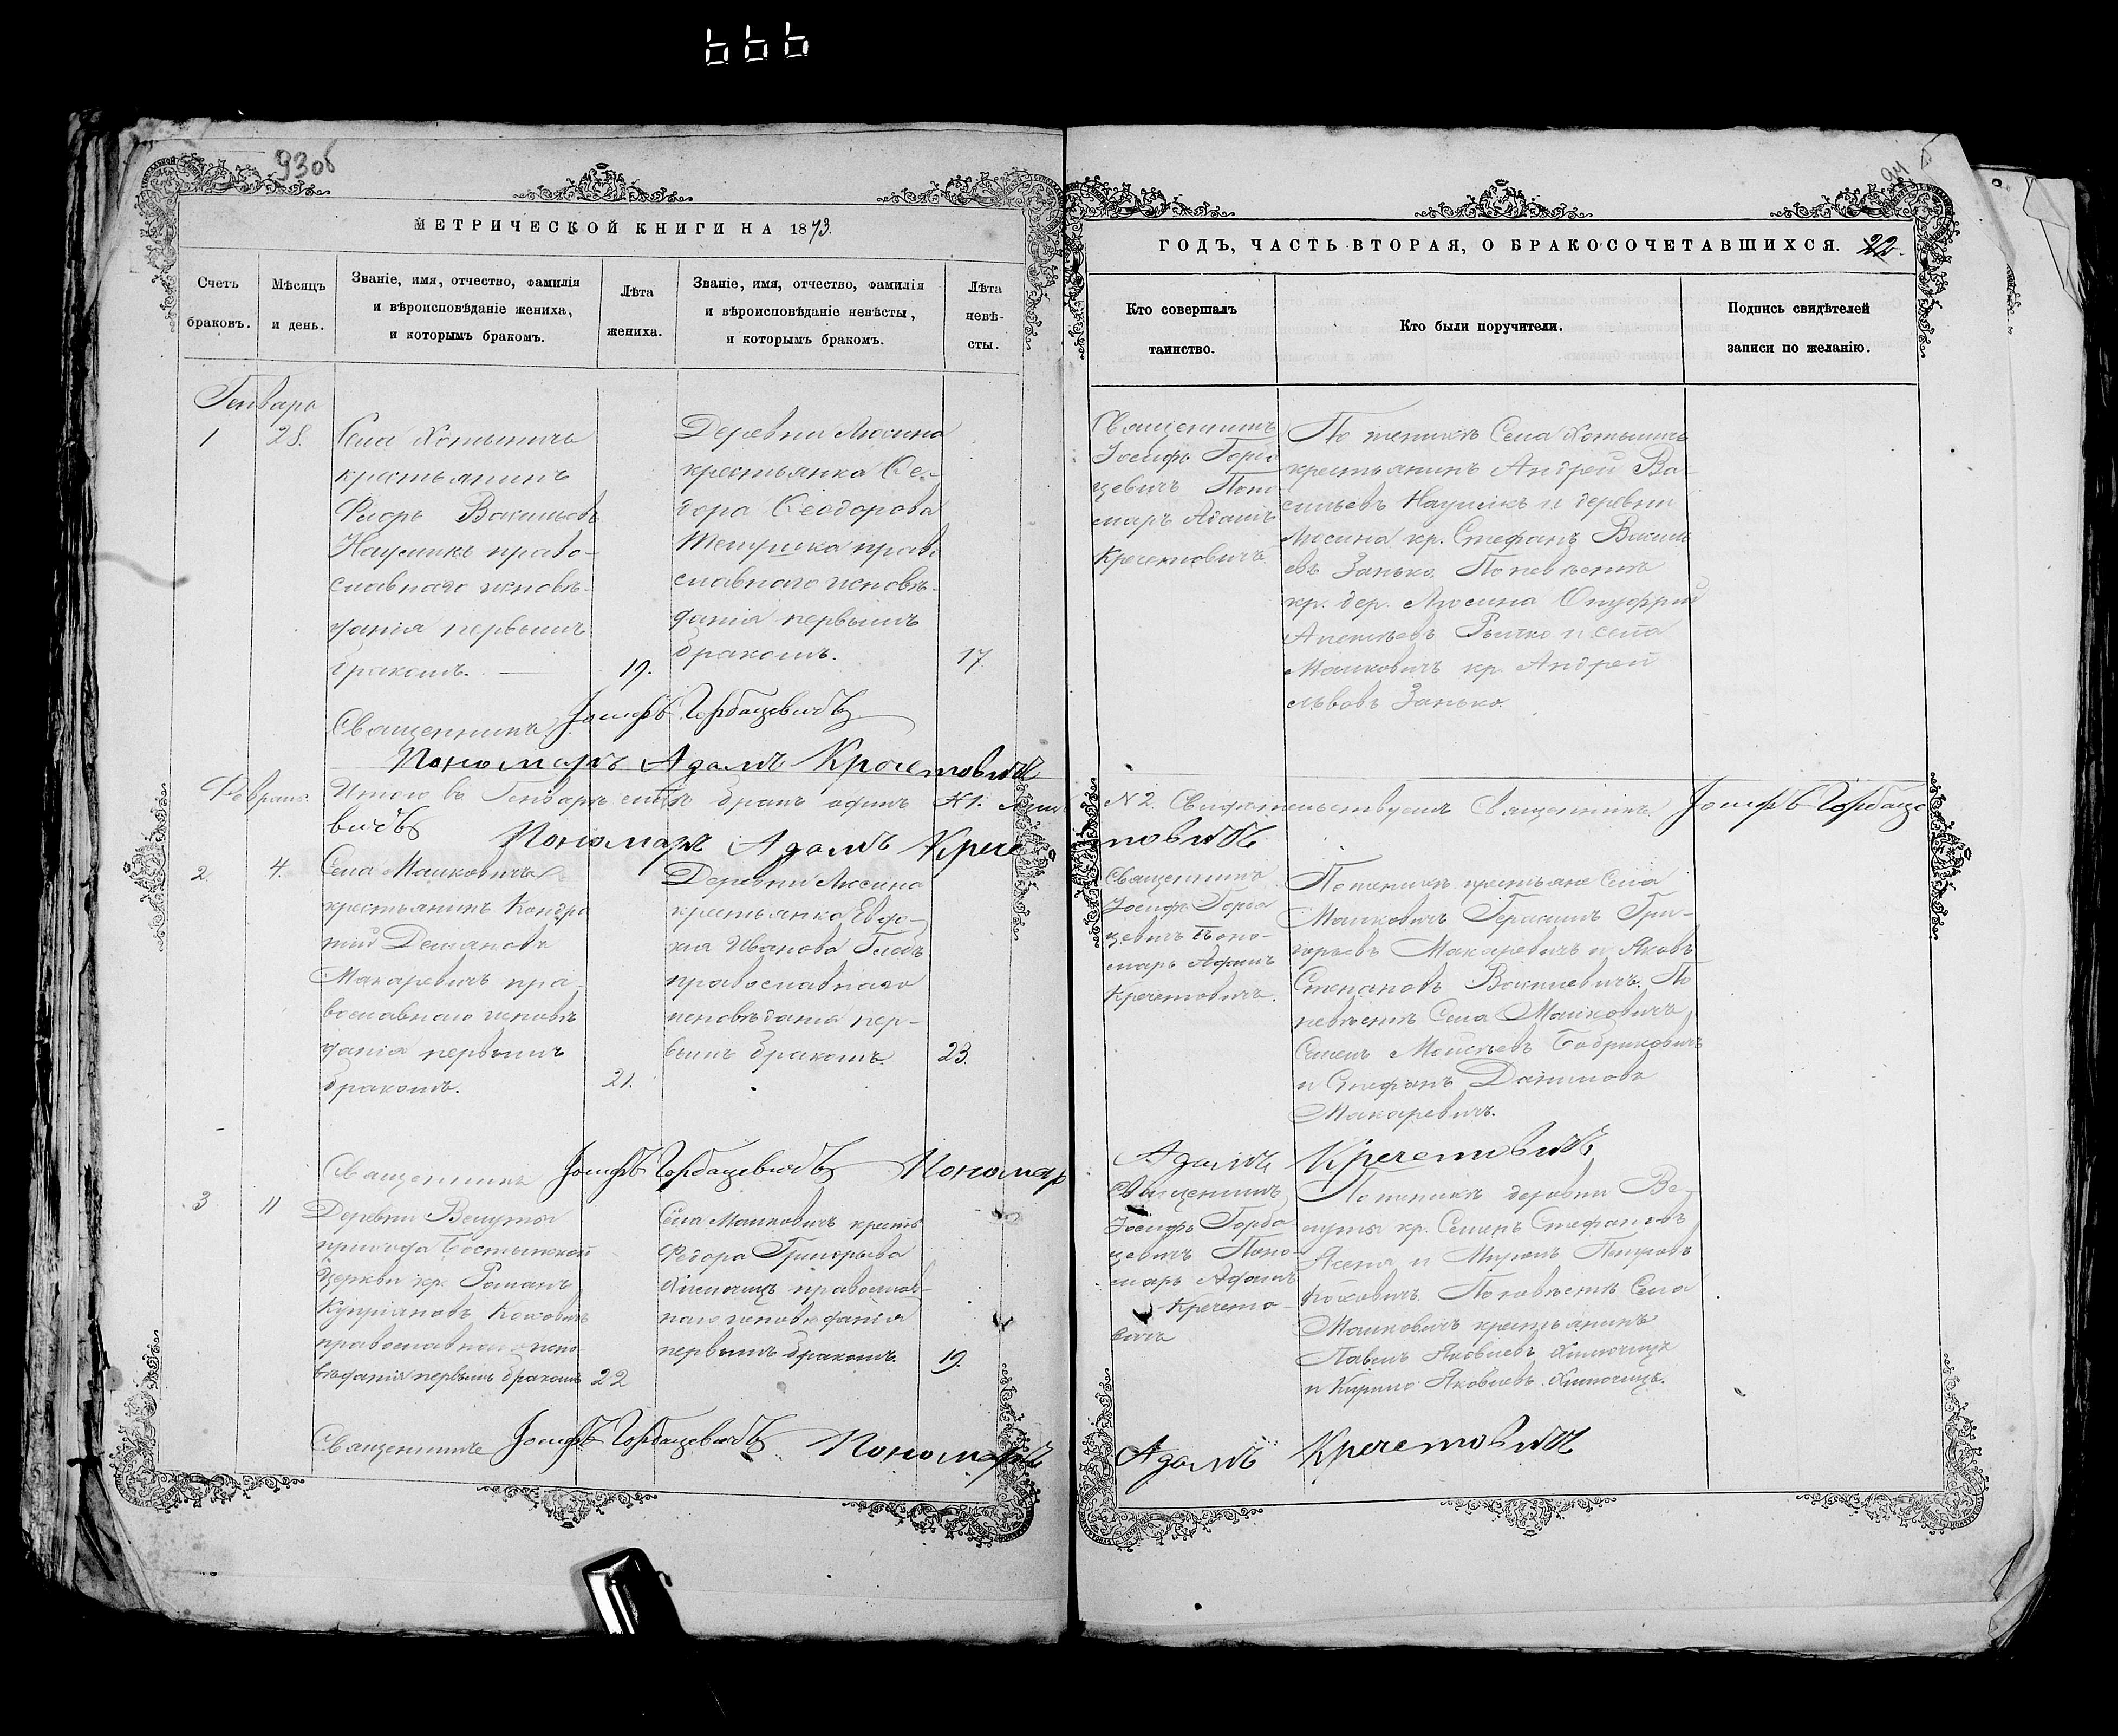 666
93об
94
МЕТРИЧЕСКОЙ КНИГИ НА 1873.
Счетъ
браковъ.
Мѣсяцъ
и день.
Званіе, имя, отчество, фамилія
и вѣроисповѣданіе жениха,
и которымъ бракомъ.
Лѣта
жениха.
Званіе, имя, отчество, фамилія
и вѣроисповѣданіе невѣсты,
и которымъ бракомъ.
Лѣта
невѣ-
сты.
ГОДЪ, ЧАСТЬ ВТОРАЯ, О БРАКОСОЧЕТАВШИХСЯ. 22.
Кто совершалъ
таинство.
Кто были поручители.
Подпись свидѣтелей
записи по желанію.
Генварь
1
28.
Села Хотынича
крестьянинъ
Флоръ Васильевъ
Наумикъ право-
славнаго исповѣ-
данія первымъ
бракомъ.
19.
Деревни Люсина
крестьянка Ѳе-
дора Ѳеодорова
православнаго исповѣ-
данія первымъ
бракомъ.
17.
Священникъ
Іосифъ Горба
цевичъ Поно-
марь Адамъ
Кречетовичъ.
По женихѣ Села Хотыничъ
крестьянинъ Андрей Ва-
сильевъ Наумикъ и деревни
Люсина кр. Стефанъ Василь
евъ Занько. По невѣстѣ
кр. дер. Люсина Онуфрій
Алексѣевъ Рытко и села
Малковичъ кр. Андрей
Львовъ Занько.
Священникъ Іосифъ Горбацевичъ
Пономарь Адамъ Кречетовичъ
Февраль.
Итого въ Генварѣ мѣся бракъ одинъ №1.
№2. Свидѣтельствуемъ Священникъ Іосифъ Горбаце
вичъ Пономарь Адамъ Крече
товичъ
2.
4.
Села Малковичъ
крестьянинъ Кондра
тій Демановъ
Макаревичъ пра-
вославнаго исповѣ
данія первымъ
бракомъ.
21.
Деревни Люсина
крестьянка Евдо-
кія Иванова Глебъ
православнаго
исповѣданія пер-
вымъ бракомъ.
23.
Священникъ
Іосифъ Горба
цевичъ Поно-
марь Адамъ
Кречетовичъ.
По женихѣ крестьяне Села
Малковичъ Герасимъ Гри-
горьевъ Макаревичъ и Яковъ
Степановъ Василевичъ. По
невѣстѣ Села Малковичъ
Семенъ Моисѣевъ Бобриковичъ
и Стефанъ Даниловъ
Макаревичъ.
Священникъ Іосифъ Горбацевичъ Пономарь
Адамъ Кречетовичъ
3
11
Деревни Велуты
прихода Бостынской
Церкви кр. Романъ
Купріановъ Коховичъ
православнаго испо
вѣданія первымъ бракомъ
22
Села Малковичъ кресть
Ѳедора Григорьева
православ-
наго исповѣданія
первымъ бракомъ.
19.
Священникъ
Іосифъ Горба-
цевичъ Поно-
марь Адамъ
Кречето-
вичъ
По женихѣ деревни Ве-
луты кр. Семенъ Стефановъ
и Миронъ Петровъ
Коховичъ. По невѣстѣ Села
Малковичъ крестьянинъ
Павелъ Яковлевъ
и Кирило Яковлевъ
Священникъ Іосифъ Горбацевичъ Пономарь
Адамъ Кречетовичъ